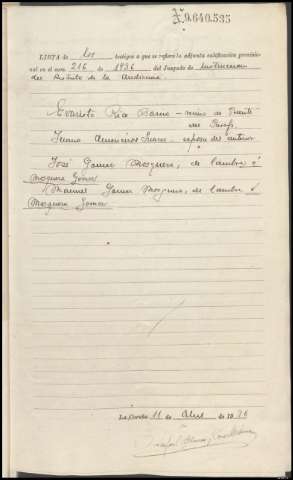 Z.9.640.535
LISTA de los testigos a que se refiere la adjunta calificación provisio-
nal en el sumº 216 de 1936 del Juzgado de Instruccion
del Distrito de la Audiencia
Evaristo Rio Barro - vecino de Puente
del
Juana Suarez - esposa del anterior
José Gomez Mosquera, de Cambre ó
Mosquera Gómez
Manuel Gomez Mosquera, de Cambre ó
Mosquera Gomez
La Coruña 11 de Abril de 1936